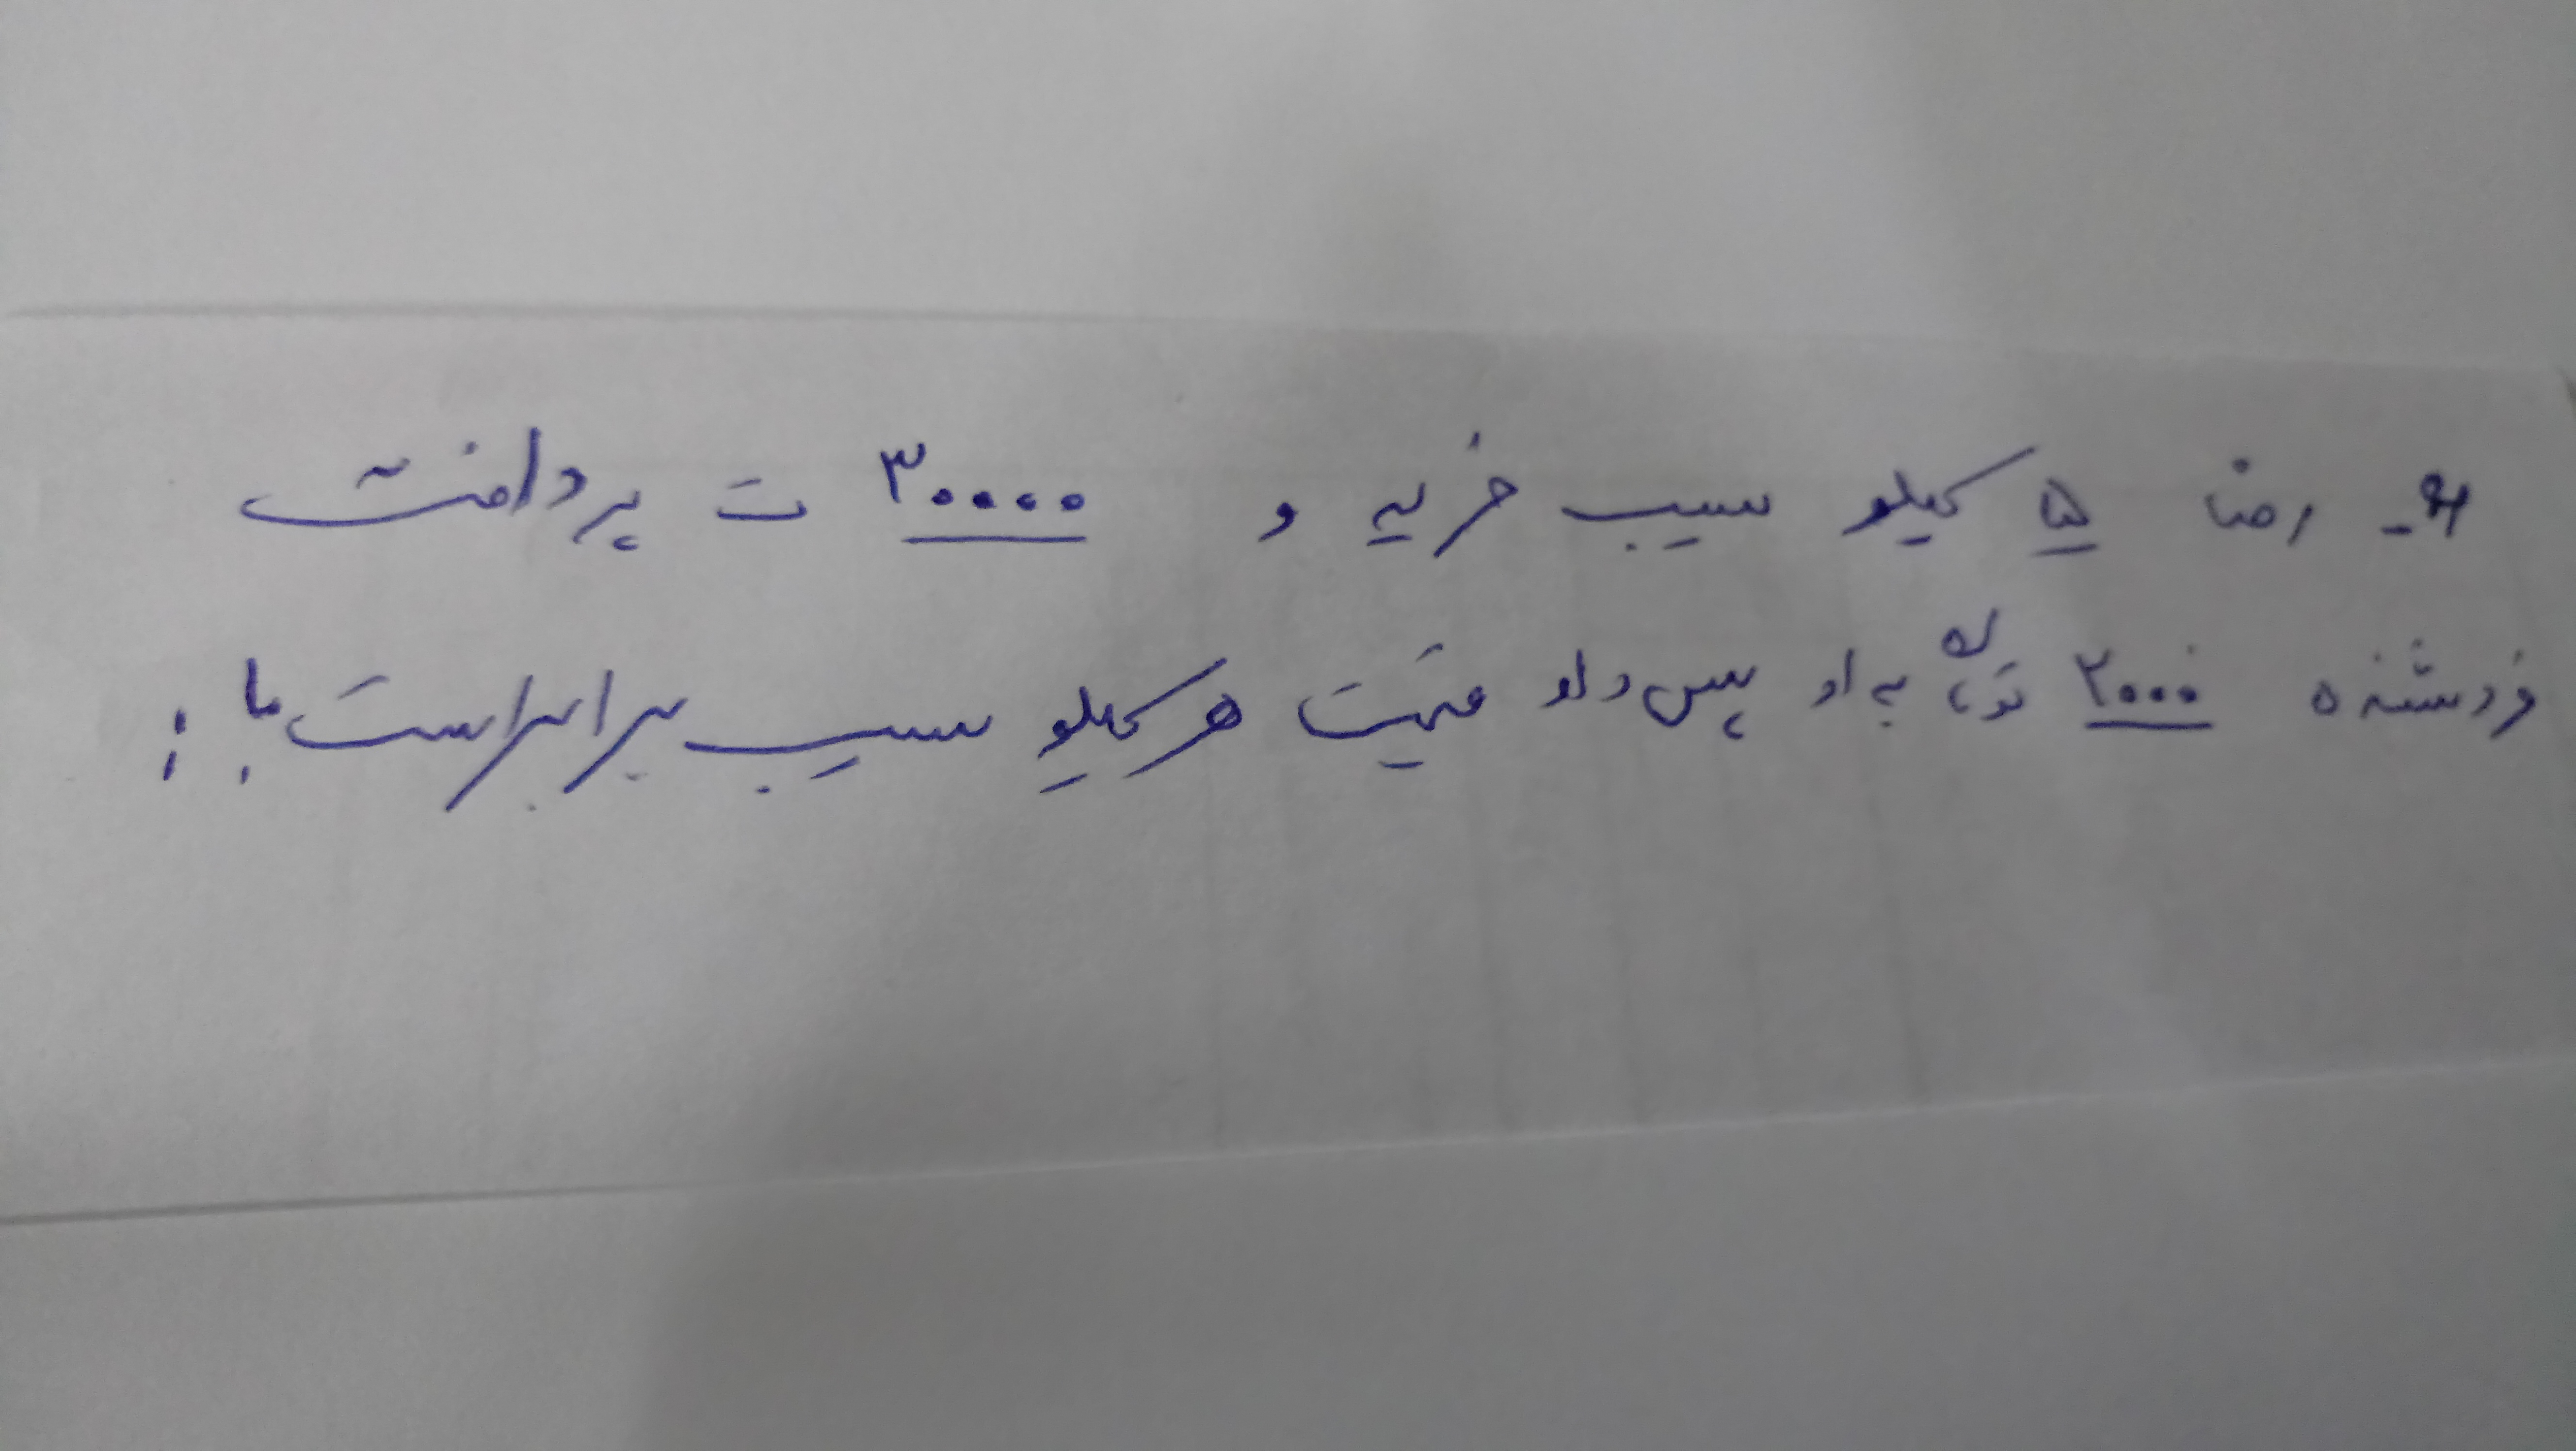 ۴- رضا ۵ کیلو سیب خرید و ۳۰۰۰۰ ت پرداخت
فروشنده ۲۰۰۰ تومان به او پس داد قیمت هر کیلو سیب برابر است با :